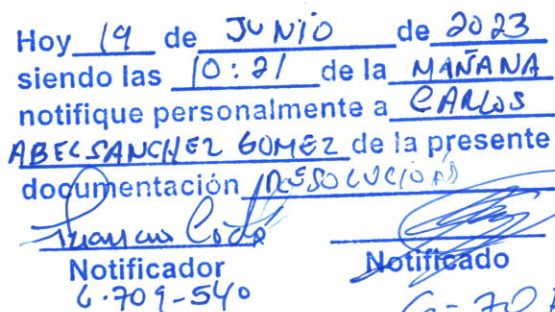 Hoy 19 de JUNIO de 2023
siendo las 10:21 de la MAÑANA
notifique personalmente a CARLOS
ABEL SANCHEZ GOMEZ de la presente
documentación RESOLUCION
Notificador Notificado
6-709-540